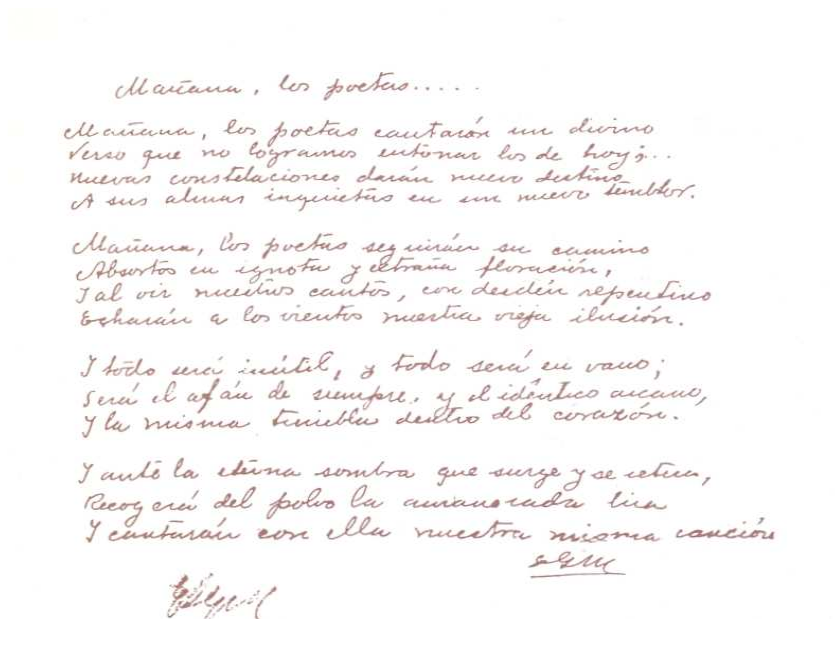 Mañana, los poetas.....
Mañana, los poetas cantarán un divino
Verso que no logramos entonar los de hoy;...
Nuevas constelaciones darán nuevo destino
A sus almas inquietas en un nuevo temblor.
Mañana, los poetas seguirán su camino
Absortos en ignota y extraña floración,
I al oir nuestros cantos, con desdén repentino
Echarán a los vientos nuestra vieja ilusión.
I todo será inútil, y todo será en vano;
Será el afán de siempre. y el idéntico arcano,
Y la misma tiniebla dentro del corazón.
I ante la eterna sombra que surge y se retira,
Recogerá del polvo la lira
Y cantarán con ella nuestra misma canción
EGM